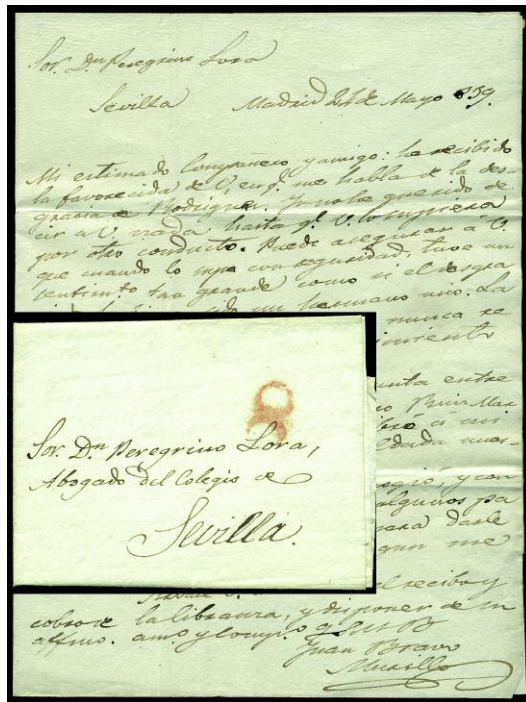 Sor. Dn Peregrino Lora
Sevilla Madrid 24 de Mayo 839.
Mi estimado Compañero y amigo: he recibido
la favorecida de V, en q. me habla de la des-
gracia de Rodriguez. Yo no he querido de
cir a V. nada hasta q. V. lo supiera
por otro conducto. Puedo asegurar á V.
que cuando lo supe con seguridad, tuve un
sentimto. tan grande como si el desgra
un hermano mio. La
nunca se
unta entre
Ruiz Mar
á mi
y con
algunos pa
darle
me
8
Sor. Dn Peregrino Lora,
Abogado del Colegio de
Sevilla.
recibo y
cobro de la libranza, y disponer de su
affmo. amo y Q S M B
Juan Bravo
Murillo